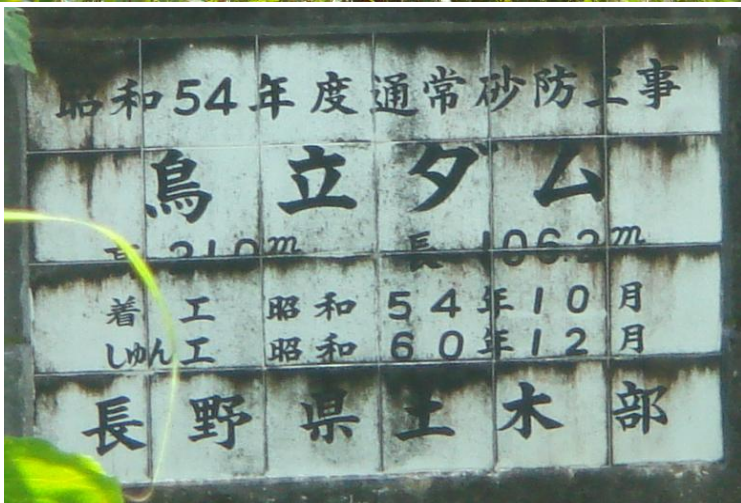 昭和54年度通常砂防工事
鳥立ダム
高 21.0m 長 106.2m
着工 昭和54年10月
しゅん工 昭和60年12月
長野県土木部